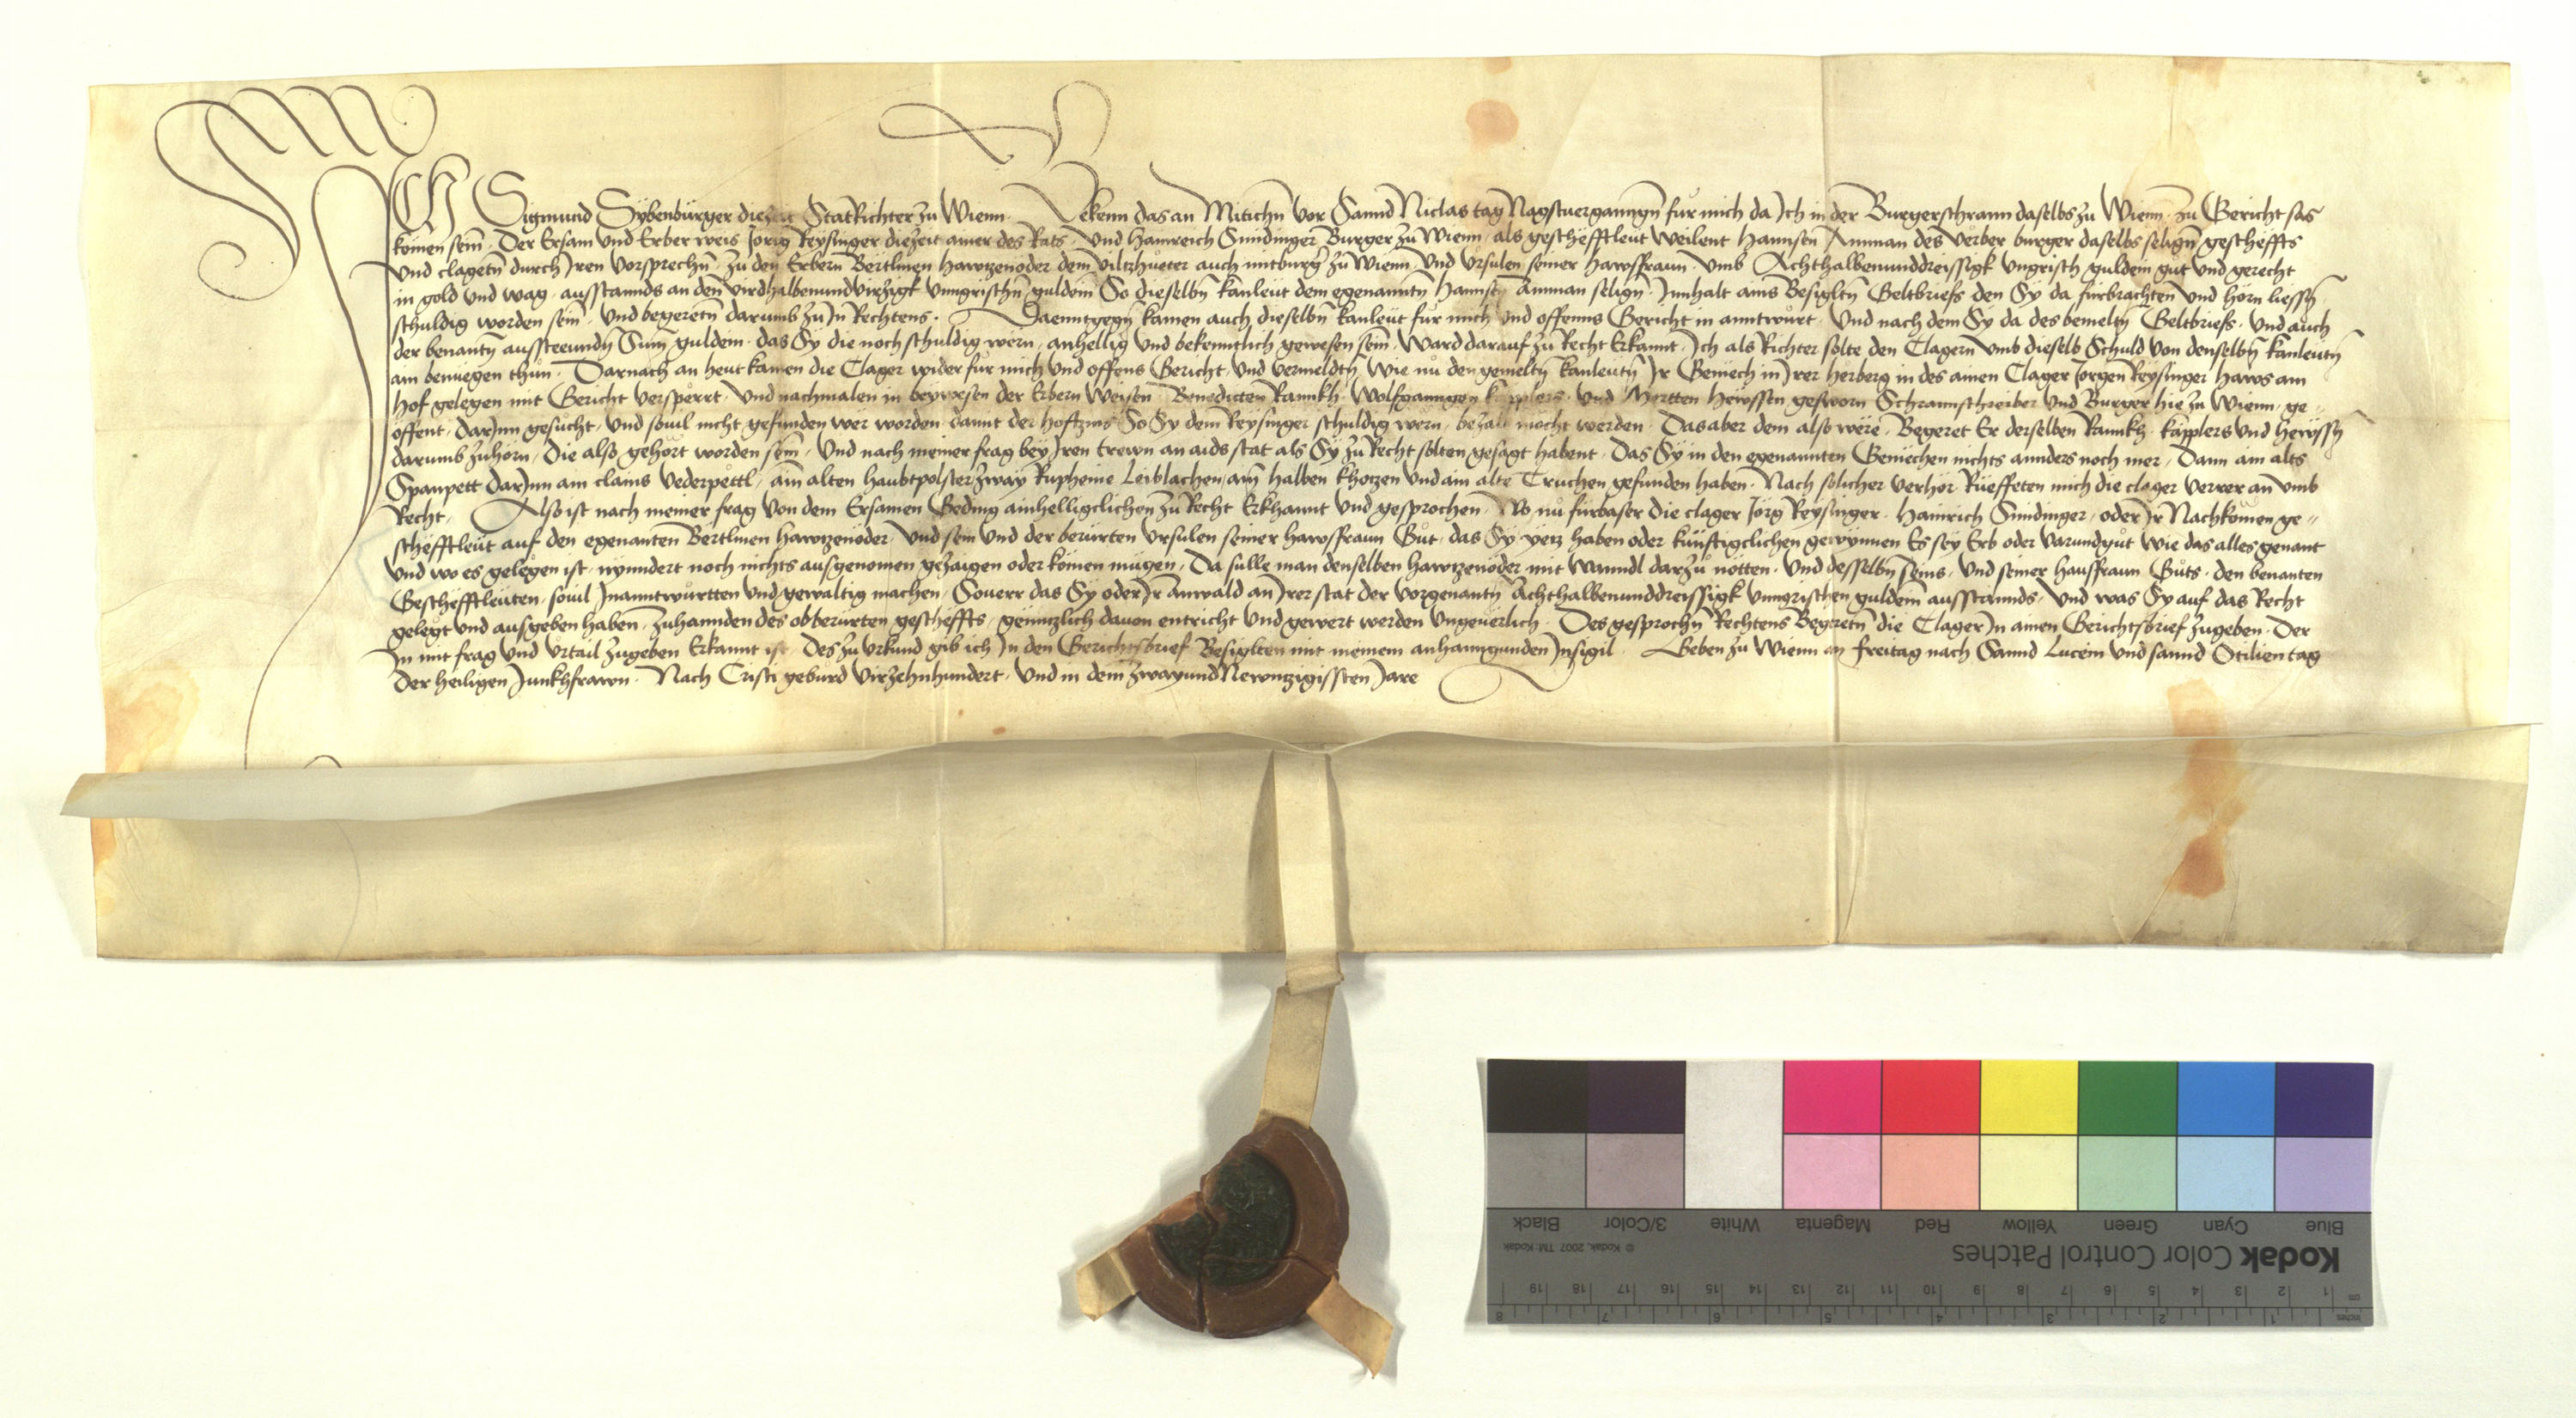 ICH Sigmund Sybenbürger diezeit StatRichter zu Wienn. Bekenn das an Mitichn vor Sannd Niclas tag Nagstuerganngn für mich da Ich in der Burgerschrann daselbs zu Wienn zu Gericht sas
komen sein. Der Ersam und Erber weis Jorig Keysinger diezeit ainer des Rats und Hainreich Sindinger Burger zu Wienn als geschefftleut weilent Hannsen Amman des verber burger daselbs seligñ gescheffts
und clagetñ durch Iren vorsprechñ zu den Erbern Bertlmen Hawzenoder dem viltzhueter auch mitburg zu Wienn und Ursulen seiner Hawsfraun umb Achthalbenunddreissigk Ungrisch guldein gut und gerecht
in gold und wag ausstannds an den virdhalbenundvirzigk Unngrischñ guldein So dieselbñ kanleut dem egenanntñ Hannsen Amman seligñ Innhalt ains Besigltñ Geltbriefs den Sy da fürbrachten und hörn liessñ
schuldig worden sein und begeretñ darumb zu In Rechtens. Daenntgegñ kamen auch dieselbñ kanleut für mich und offenns Gericht in anntwurt und nach dem Sy da des bemeltñ Geltbriefs und auch
der benantñ aussteeundñ Sum guldein das Sy die noch schuldig wern anhellig und bekenntlich gewesen sein Ward darauf zu Recht Erkannt Ich als Richter solte den Clagern umb dieselb Schuld von denselbñ kanleutñ
ain benuegen thun. Darnach an heut kamen die Clager wider für mich und offens Gericht und vermeldtñ wie nu den gemeltñ kanleutñ Ir Gemech in Irer herberg in des ainen Clager Jorgen Keysinger Haws am
Hof gelegen mit Gericht versperrt und nachmalen in beywesen der Erbern Weisen Benedicten Rannkh Wolfganngen kapplers und Mertten Hewssen gesworn Schrannschreiber und Burger hie zu Wienn ge„
offent darInn gesucht und souil nicht gefunden wer worden damit der hofzins So Sy dem Keysinger schuldig wern bezalt mocht werden Das aber dem also were Begeret Er derselben Rannkh kapplers und Hewssñ
darumb zuhörn Die also gehört worden sein Und nach meiner frag bey Iren trewn an aids stat als Sy zu Recht solten gesagt habent Das Sy in den egenannten Gemechen nichts annders noch mer Dann ain alts
Spanpett darInn ain clains vederpettl ain alten haubtpolster zway Rupheine Leiblachen ain halben khotzen und ain alte Truchen gefunden haben. Nach solicher verhör Rueffeten mich die clager verrer an umb
Recht. Also ist nach meiner frag von dem Ersamen Geding ainhelligclichen zu Recht Erkhannt und gesprochen Wo nu fürbaser die clager Jörg Keysinger Hainrich Sindinger oder Ir Nachkomen ge„
schefftleut auf den egenanten Bertlmen Hawzenoder und sein und der berürten Ursulen seiner Hawsfraun Gut das Sy yetz haben oder künftigclichen gewynnen Es sey Erb oder varundgut wie das alles genant
und wo es gelegen ist nynndert noch nichts ausgenomen gezaigen oder komen mügen Da sülle man denselben Hawzenoder mit wanndl darzu nötten und desselbñ seins und seiner hausfraun Guts den benanten
Geschefftleuten souil Inanntwurtten und gewaltig machen Souerr das Sy oder Ir Anwald an Irer stat der vorgenantñ Achthalbenunddreissigk Unngrischen guldein ausstannds und was Sy auf das Recht
gelegt und ausgeben haben zuhannden des obberürten gescheffts genntzlich dauon entricht und gewert werden ungeuerlich. Des gesprochñ Rechtens Begeretñ die Clager In ainen Gerichtsbrief zugeben. Der
In mit frag und Urtail zugeben Erkannt ist Des zu Urkund gib ich In den Gerichtsbrief Besiglten mit meinem anhanngunden Insigil. Geben zu Wienn an freitag nach Sannd Lucein und sannd Otilien tag
Der heiligen Junkhfrawn. Nach Cristi geburd virzehnhundert und in dem zwayundNewntzigissten Jare
Black 3/Color White Magenta Red Yellow Green Cyan Blue
© Kodak, 2007 TM: Kodak
Kodak Color Control Patches
cm 1 2 3 4 5 6 7 8 9 10 11 12 13 14 15 16 17 18 19
inches 1 2 3 4 5 6 7 8